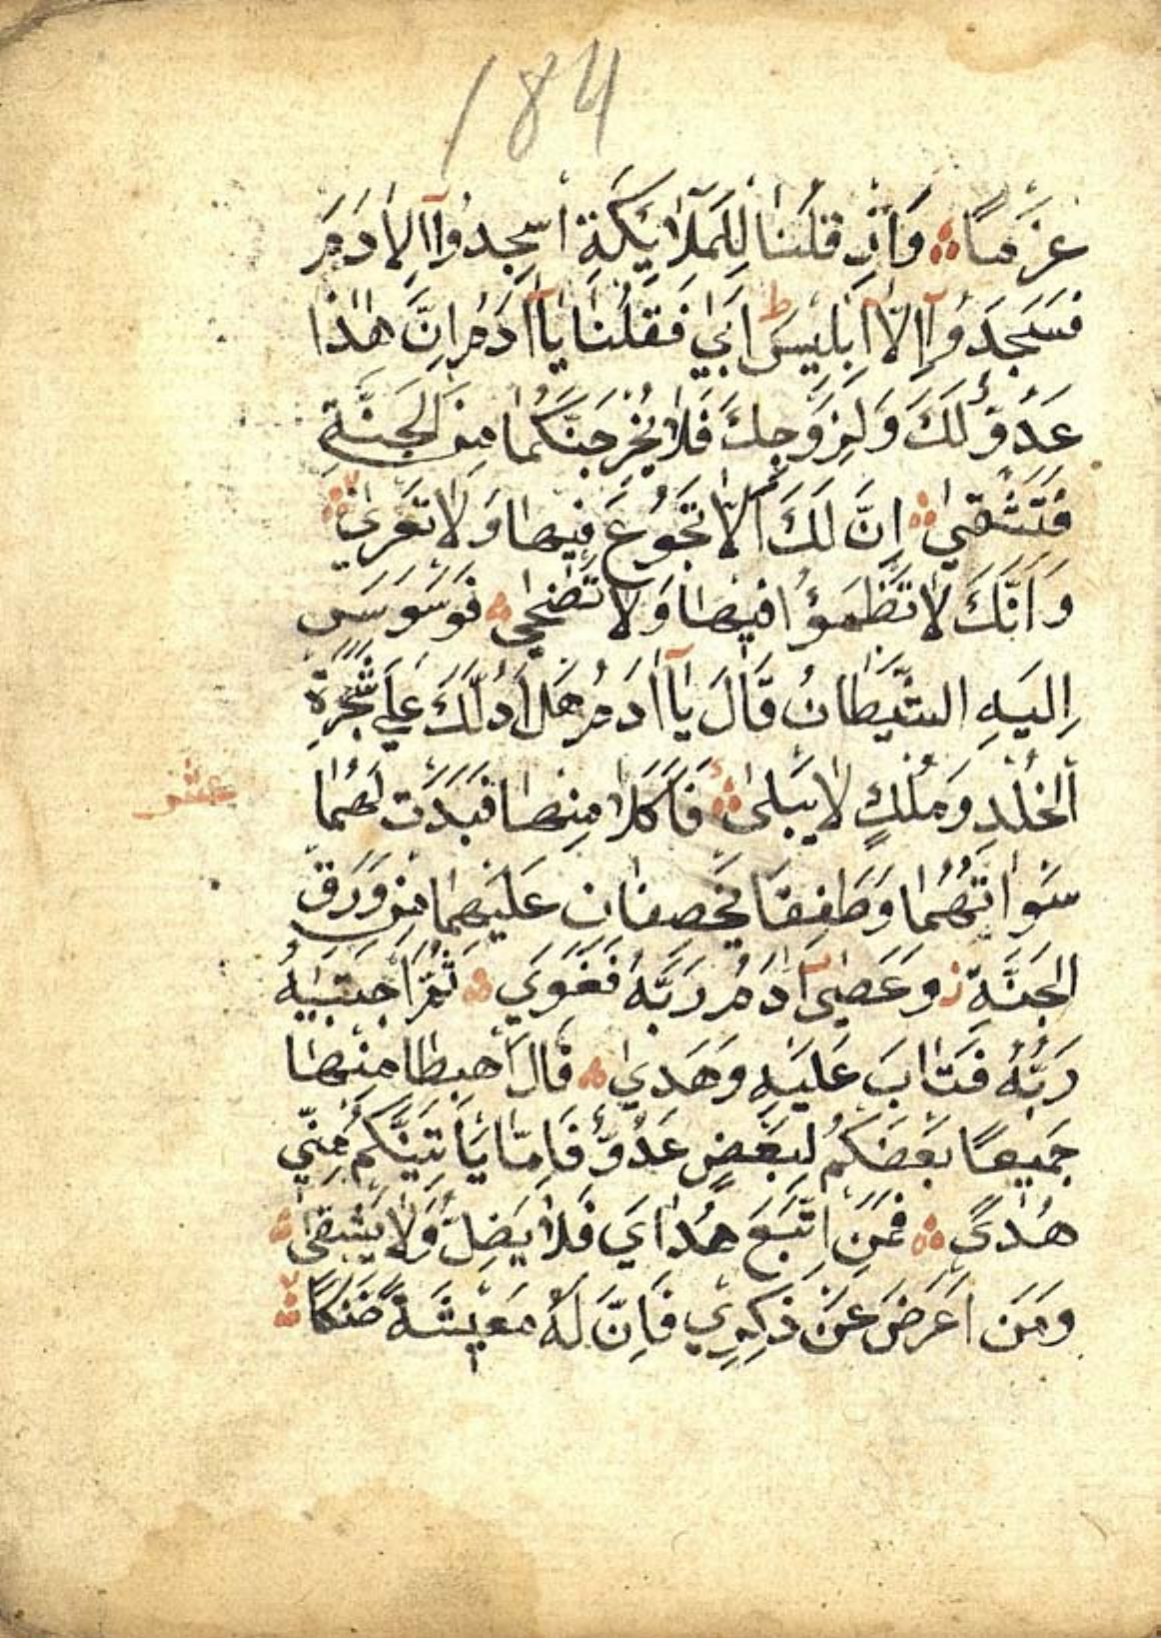 184
عَزْمًا وَاِذْ قُلْنَا لِلْمَلَآئِكَةِ اسْجِدُوآ اِلِاٰدَمَ
فَسَجَدُوآ اِلَّآ اِبْلِيسَ ط اَبٰي فَقُلْنَا يَآاٰدَمُ اِنَّ هٰذَا
عَدُوٌّ لَكَ وَلِزَوْجِكَ فَلَا يُخْرِجَنَّكُمَا مِنَ الْجَنَّةِ
فَتَشْقٰي اِنَّ لَكَ اَلَّا تَجُوعَ فِيهَا وَلَا تَعْرٰي
وَاَنَّكَ لَا تَظْمَؤُا فِيهَا وَلَا تَضْحٰي فَوَسْوَسَ
اِلَيْهِ الشَّيْطَانُ قَالَ يَآاٰدَمُ هَلْ اَدُلُّكَ عَلٰي شَجَرَةِ
الْخُلْدِ وَمُلْكٍ لَا يَبْلٰى فَاَكَلَا مِنْهَا فَبَدَتْ لَهُمَا
عشر
سَوْاٰتُهُمَا وَطَفِقَا يَخْصِفَانِ عَلَيْهِمَا مِنْ وَرَقِ
الْجَنَّةِ ز وَعَصٰىٓ اٰدَمُ رَبَّهُ فَغَوٰي ثُمَّ اجْتَبٰيهُ
رَبُّهُ فَتَابَ عَلَيْهِ وَهَدٰي قَالَ اهْبِطَا مِنْهَا
جَمِيعًا بَعْضُكُمْ لِبَعْضٍ عَدُوٌّ فَاِمَّا يَاْتِيَنَّكُمْ مِنِّي
هُدًي فَمَنِ اتَّبَعَ هُدَايَ فَلَا يَضِلُّ وَلَا يَشْقٰي
وَمَنْ اَعْرَضَ عَنْ ذِكْرِي فَاِنَّ لَهُ مَعِيشَةً ضَنْكًا